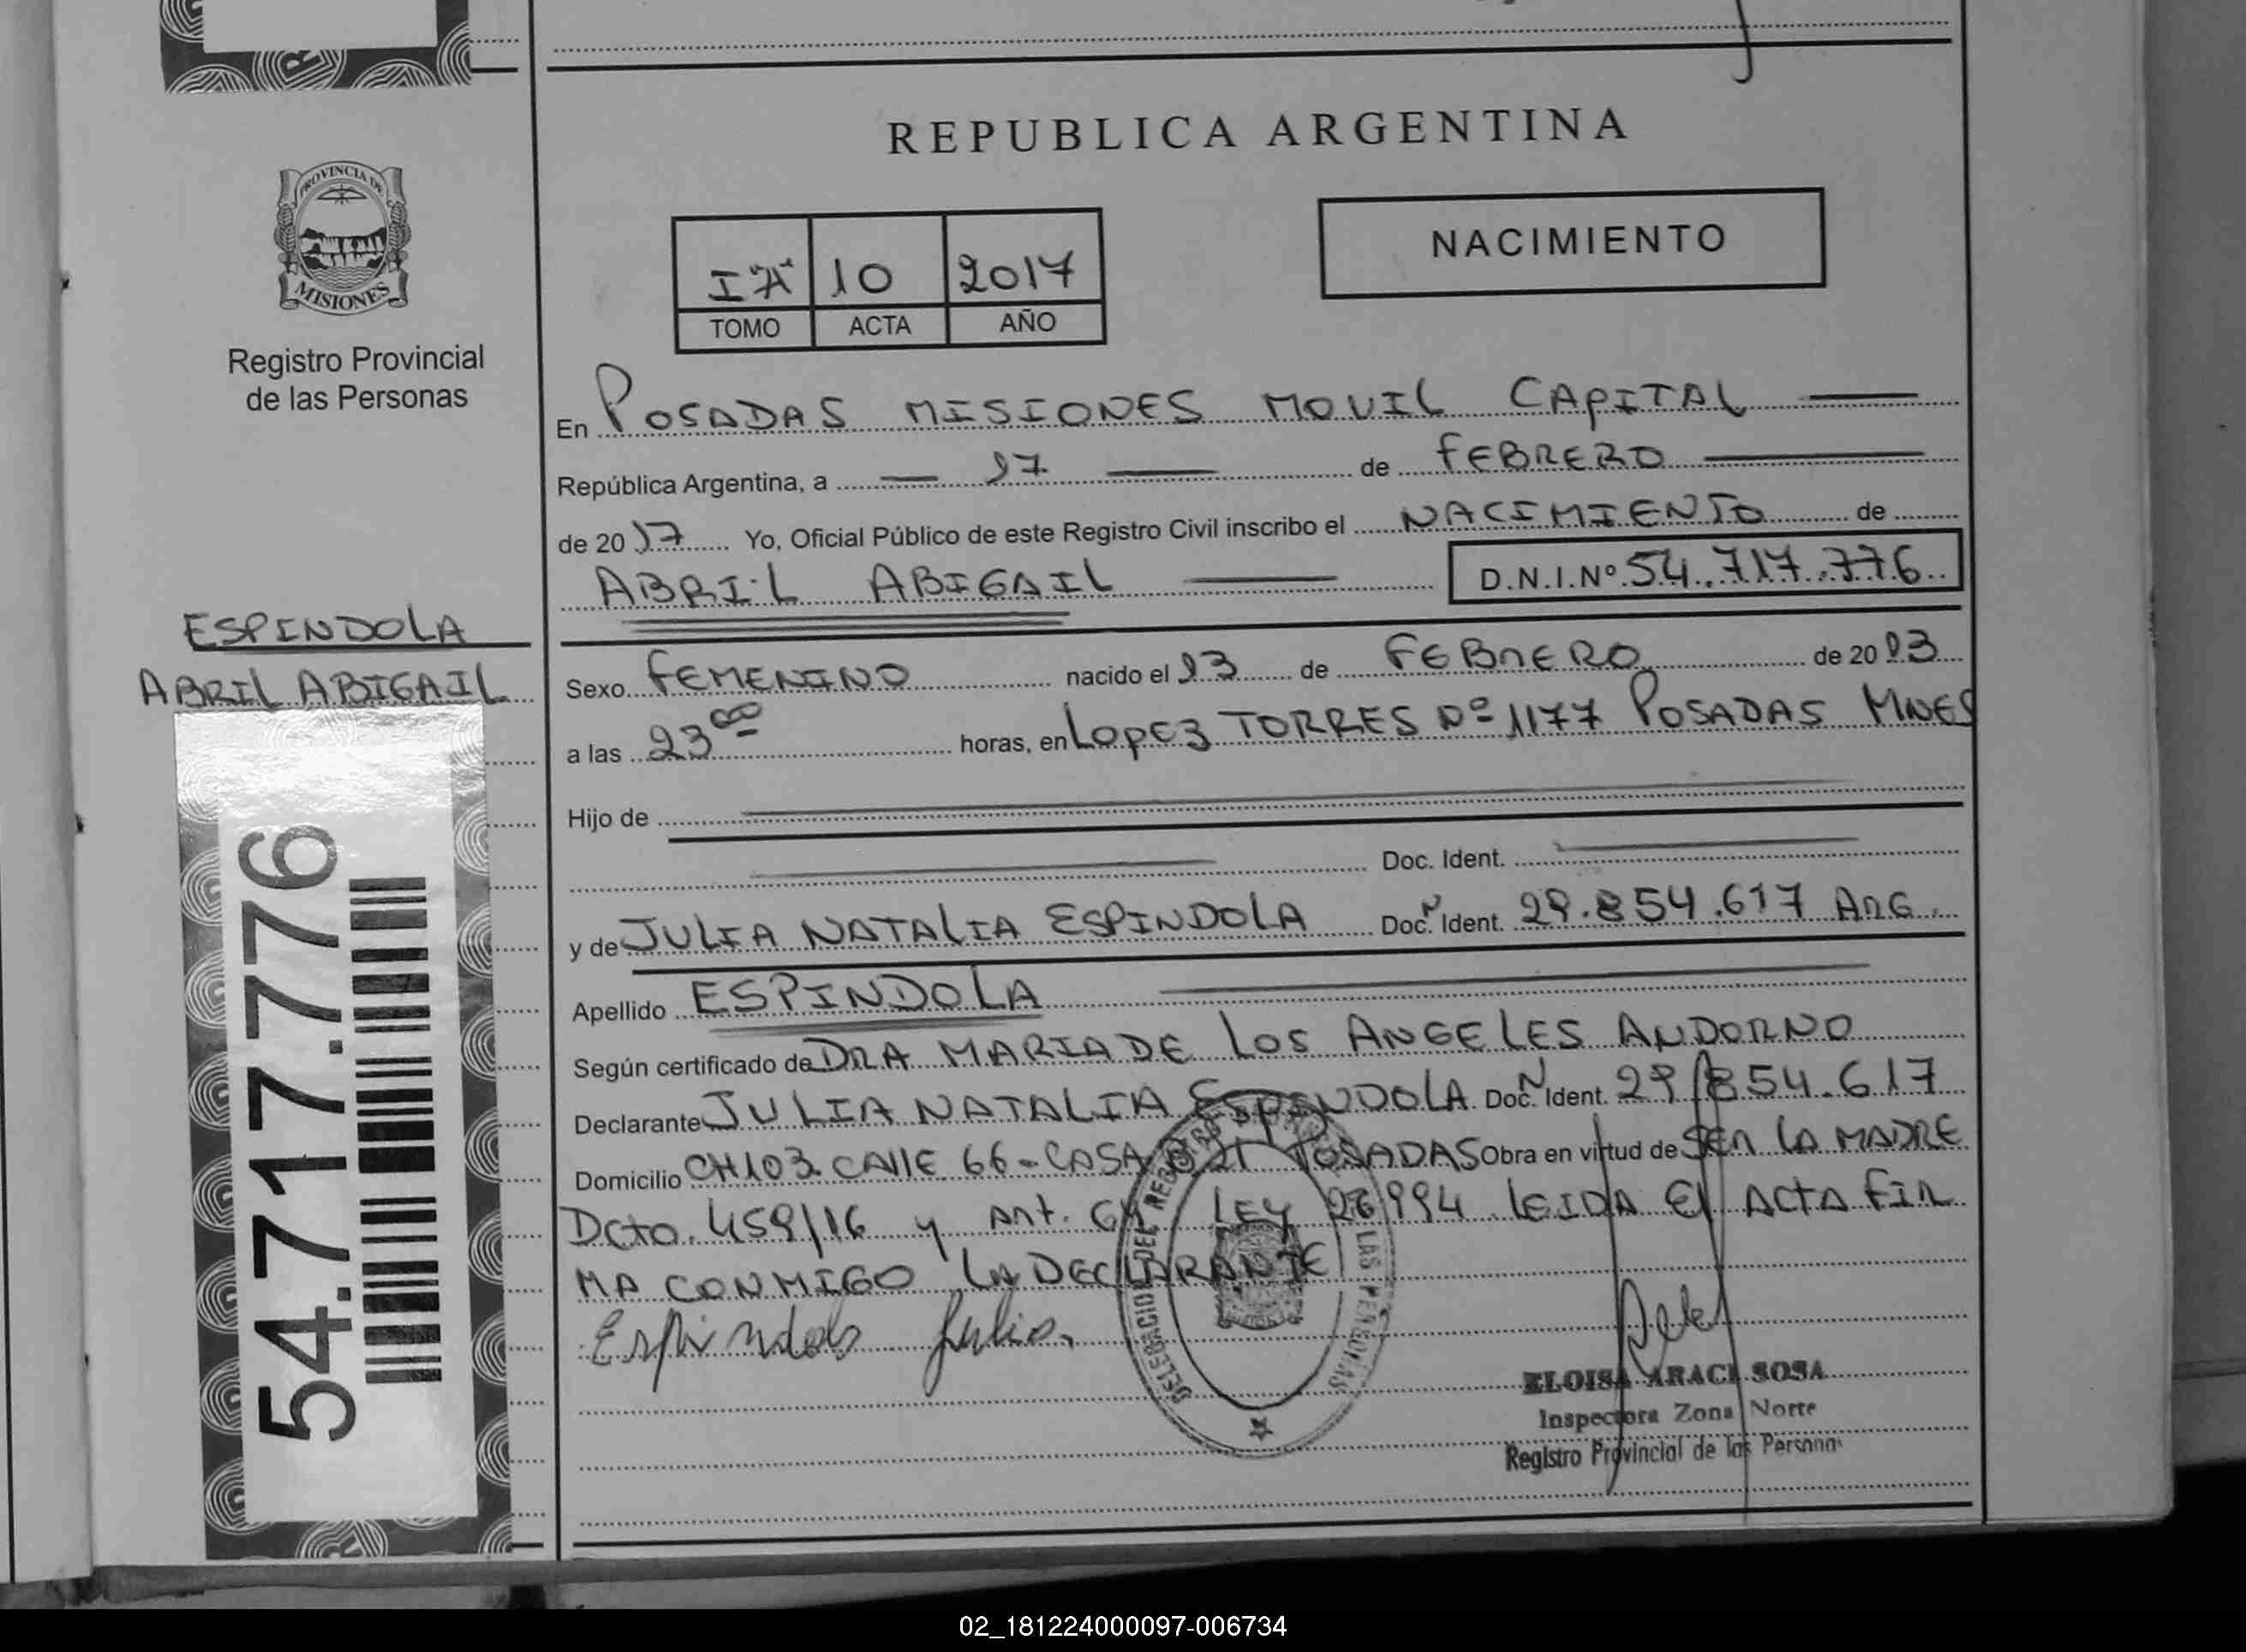 REPUBLICA ARGENTINA
PROVINCIA DE
MISIONES
Registro Provincial
de las Personas
NACIMIENTO
10 2017
TOMO ACTA AÑO
En POSADAS MISIONES MOVIL CAPITAL
República Argentina, a 17 de FEBRERO
de 2017 Yo, Oficial Público de este Registro Civil inscribo el NACIMIENTO de
ABRIL ABIGAIL D.N.I.Nº 54.717.776
ESPINDOLA
ABRIL ABIGAIL
54.717.776
Sexo FEMENINO nacido el 13 de FEBRERO de 2013
a las 23 00 horas, en LOPEZ TORRES Nº 1177 POSADAS MNES
Hijo de
Doc. Ident.
y de JULIA NATALIA ESPINDOLA Doc. N Ident. 29.854.617 ARG.
Apellido ESPINDOLA
Según certificado de DRA MARIA DE LOS ANGELES ANDORNO
Declarante JULIA NATALIA ESPINDOLA Doc. N Ident. 29.854.617
Domicilio CH 103 CALLE 66 - CASA POSADAS Obra en virtud de SER LA MADRE
Dcto. 459/16 y Art. 64 LEY 26994 LEIDA El ACTA FIR
MA CONMIGO LA DECLARANTE
Espindola Julia.
DELEGACION DEL REGISTRO LAS PERSONAS
ELOISA ARACI SOSA
Inspectora Zona Norte
Registro Provincial de las Personas
02_181224000097-006734